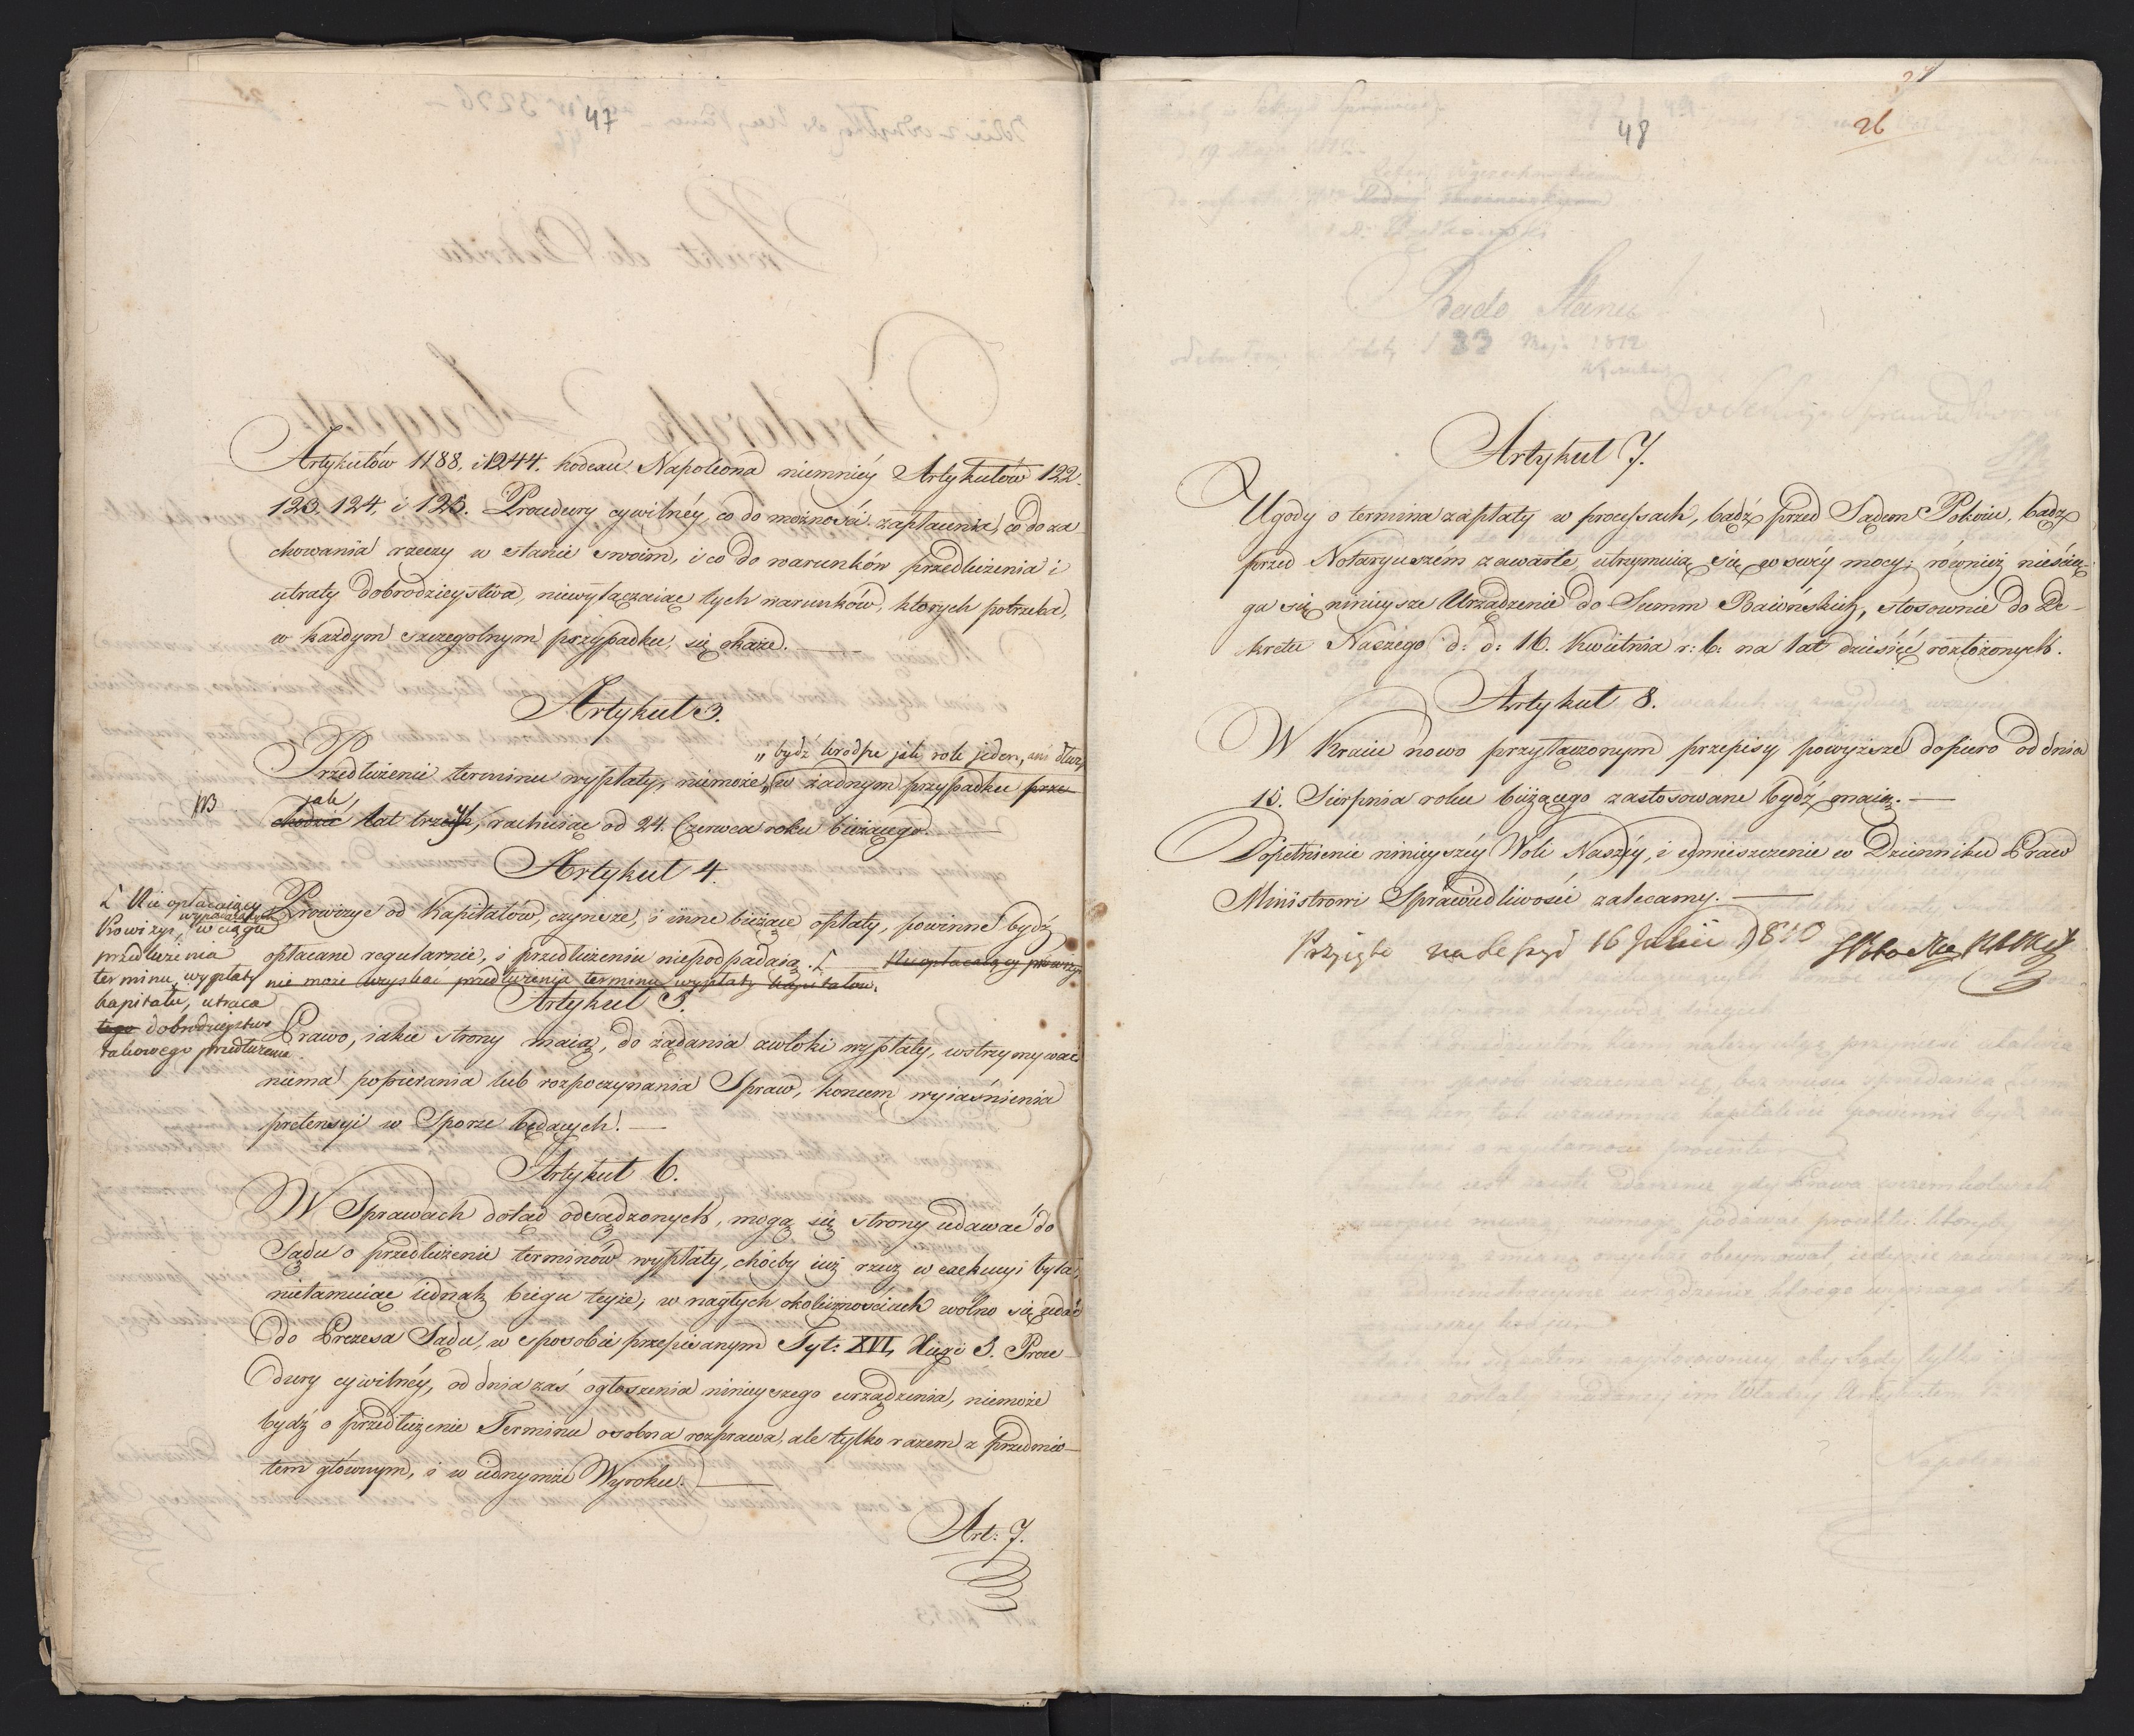 47
Artykułów 1188. i 1244. kodexu Napoleona niemniéy Artykułów 122.
123. 124. i 125. Procedury cywilnéy, co do możności zapłacenia, co do za-
chowania rzeczy w stanie swoim, i co do warunków przedłużenia i
utraty dobrodzieystwa, niewyłączaiąc tych warunków, których potrzeba,
w każdym szczególnym przypadku, się okaże.
Artykuł 3.
„bydź krótsze jak rok jeden, ani dłuż
Przedłużenie terminu wypłaty, niemoże „w żadnym przypadku prze-
NB
jak
chodzić lat trzech, rachuiąc od 24. Czerwca roku bieżącego.
Artykuł 4.
Prowizye od Kapitałów, czynsze, i inne bieżące opłaty, powinne bydź
opłacane regularnie, i przedłużeniu niepodpadaią. [ Nieopłacaiący prowizyi
nie może uzyskać przedłużenia terminu wypłaty kapitałów.
[ Nie opłacaiący
wyznaczonych
Prowizyi, w ciągu
przedłużenia
terminu wypłaty
kapitału, utraca
tego dobrodzieystwo
takowego przedłużenia.
Artykuł 5.
Prawo, iakie strony maią, do żądania zwłoki wypłaty, wstrzymywać
niema popierania lub rozpoczynania Spraw, koncem wyiaśnienia
pretensyi w Sporze będących.
Artykuł 6.
W Sprawach dotąd odsądzonych, mogą się strony udawać do
Sądu o przedłużenie terminów wypłaty, choćby iuż rzecz w exekucyi była,
nietamuiąc iednak biegu teyże; w nagłych okolicznościach wolno się udać
do Prezesa Sądu, w sposobie przepisanym Tyt: XVI, Xięgi 5. Proce-
dury cywilnéy, od dnia zaś ogłoszenia ninieyszego urządzenia, niemoże
bydź o przedłużenie Terminu osobna rozprawa, ale tylko razem z przedmio-
tem głównym, i w iednymże Wyroku.
Art: 7.
48
26
Artykuł 7.
Ugody o termina zapłaty w processach, bądź przed Sądem Pokoiu, bądź
przed Notaryuszem zawarte, utrzymuią się w swéy mocy; również nieścią-
ga się ninieysze Urządzenie do Summ Baiońskich, stosownie do De-
kretu Naszego d: d: 16. Kwietnia r: b: na lat dziesięć rozłożonych.
Artykuł 8.
W Kraiu nowo przyłączonym przepisy powyższe dopiero od dnia
15. Sierpnia roku bieżącego zastosowane bydź maią.
Dopełnienie ninieyszéy Woli Naszéy, i umieszczenie w Dzienniku Praw
Ministrowi Sprawiedliwości zalecamy.
Przyięto na Sessyi 16 Julii 1810